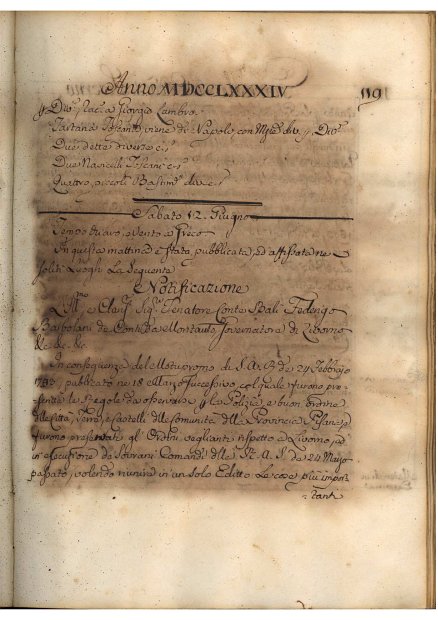 Anno MDCCLXXXIV. 119
p Div.si racc.a Giorgio Cambro
Tartana Toscana viene di Napoli con Mer.e div.e p Div.si
Due dette diverse c.s.
Due Navicelli Toscani c.s.
Quattro piccoli Bastim.ti div. c.s.
Sabato 12. Giugno
Tempo buono, e Vento a Greco
In questa mattina è stata pubblicata, ed affissata ne
soliti Luoghi La seguente
Notificazione
L'Ill.mo e Clariss. Sig.r Senatore Conte Balì Federigo
Barbolani de Conti da Montauto Governatore di Livorno
&c. &c. &c.
In conseguenza del Motuproprio di S. A. R. de 24 Febbraio
1783, pubblicato ne 18 Marzo successivo, col quale furono pre-
sentte le Regole da osservarsi p la Polizia, e buon ordine
delle Città, Terre, e Castelli delle Comunità della Provincia Pisana, e
furono presentati gl'Ordini veglianti rispetto a Livorno, ed
in esecuzione de Sovrani Comandi della R. A. S. de 24 Marzo
passato, volendo riunire in un solo Editto Le cose più impor-
tanti